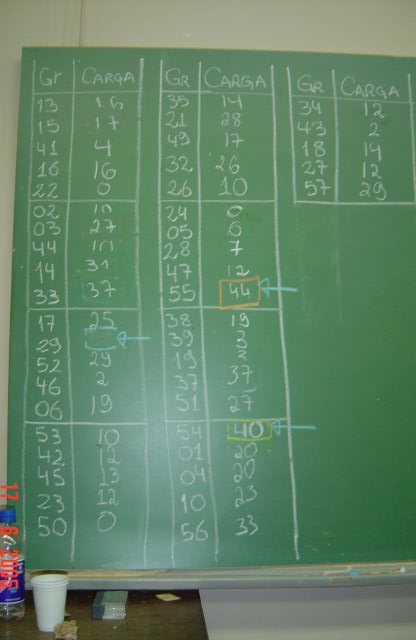 Gr CARGA
13 15
15 17
41 4
16 16
22 0
02
03 27
44
14 31
33 37
17 25
29
52 29
46 2
06 19
53 10
42 12
45 13
23 12
50 0
GR CARGA
35 14
21 28
49 17
32 26
26 10
24 0
05 0
28 7
47 12
55 44
38 19
39 3
19 2
37 37
51 27
54 40
01 20
04 20
10 23
56 33
GR CARGA
34 12
43 2
18 14
27 12
57 29